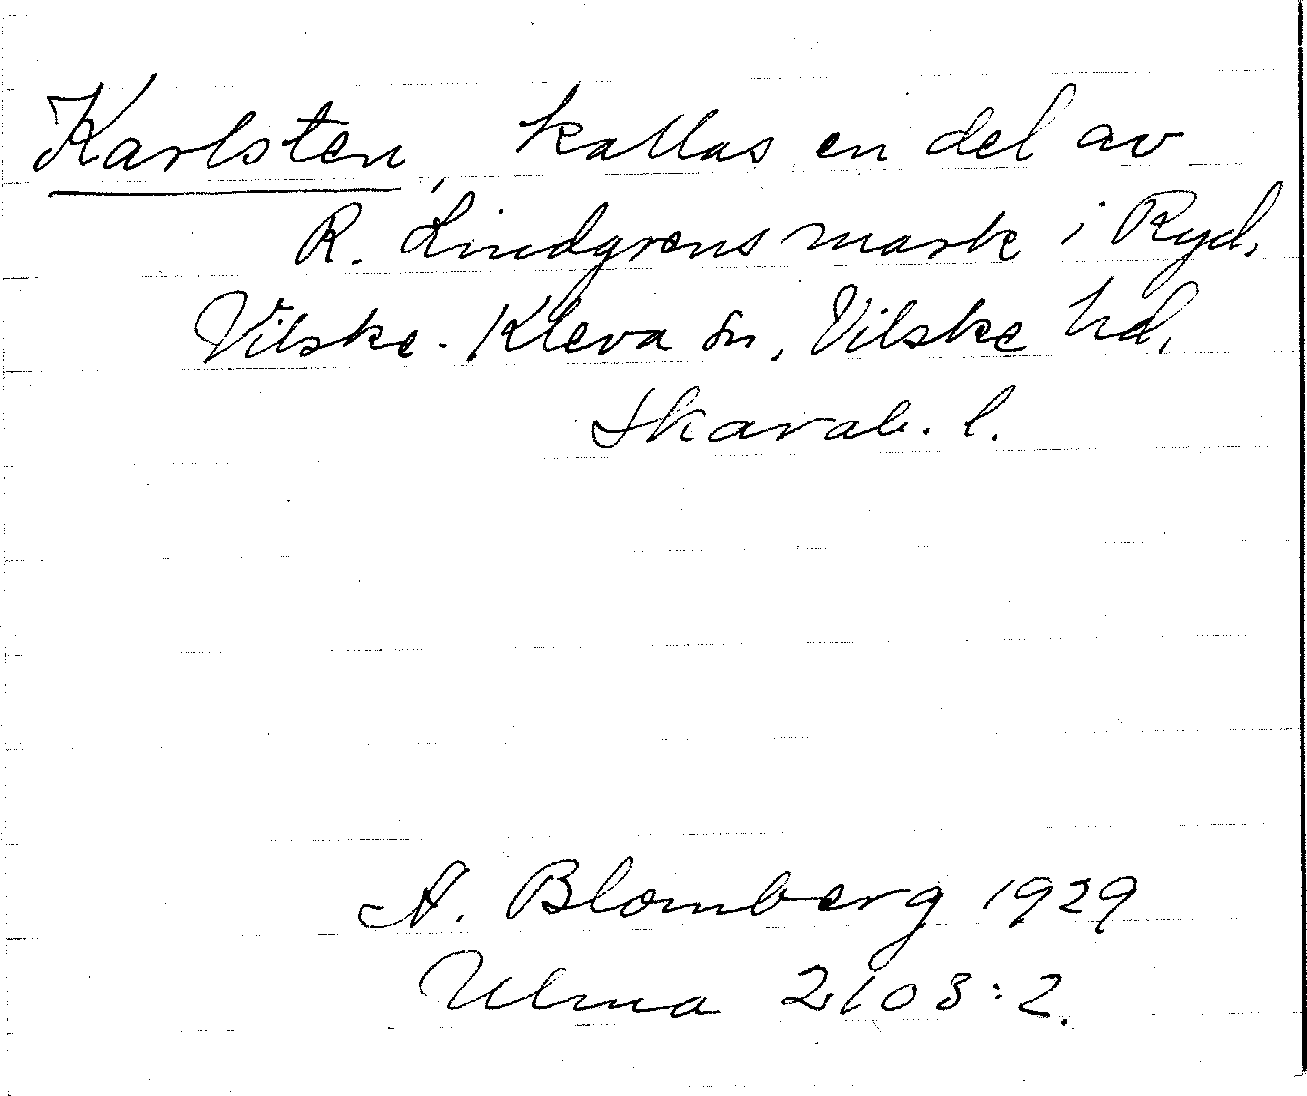 Karlsten, kallas en del av
R. Lindgrens mark i Ryd,
Vilske-Kleva sn, Vilske hd,
Skarab. l.
A. Blomberg 1929
Ulma 2103:2.